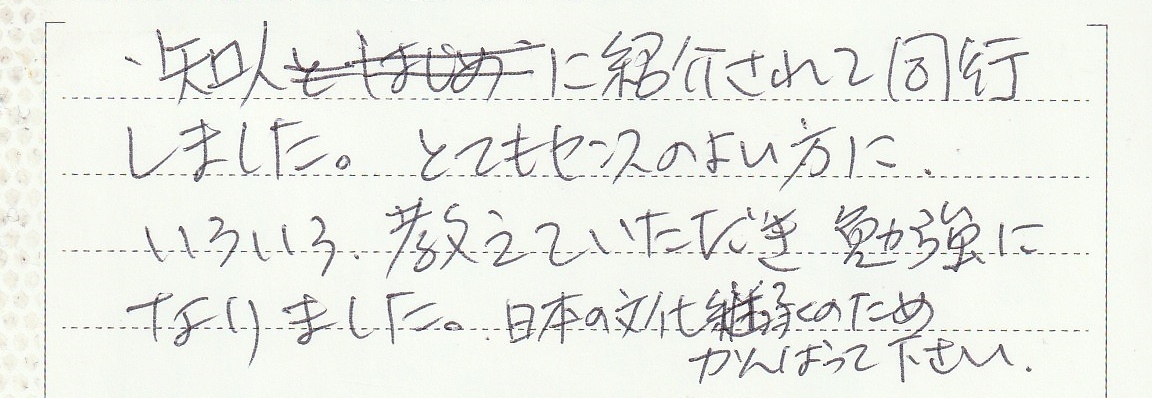 ・知人に紹介されて同行
しました。とてもセンスのよい方に、
いろいろ、教えていただき勉強に
なりました。日本の文化継承のため
がんばって下さい.